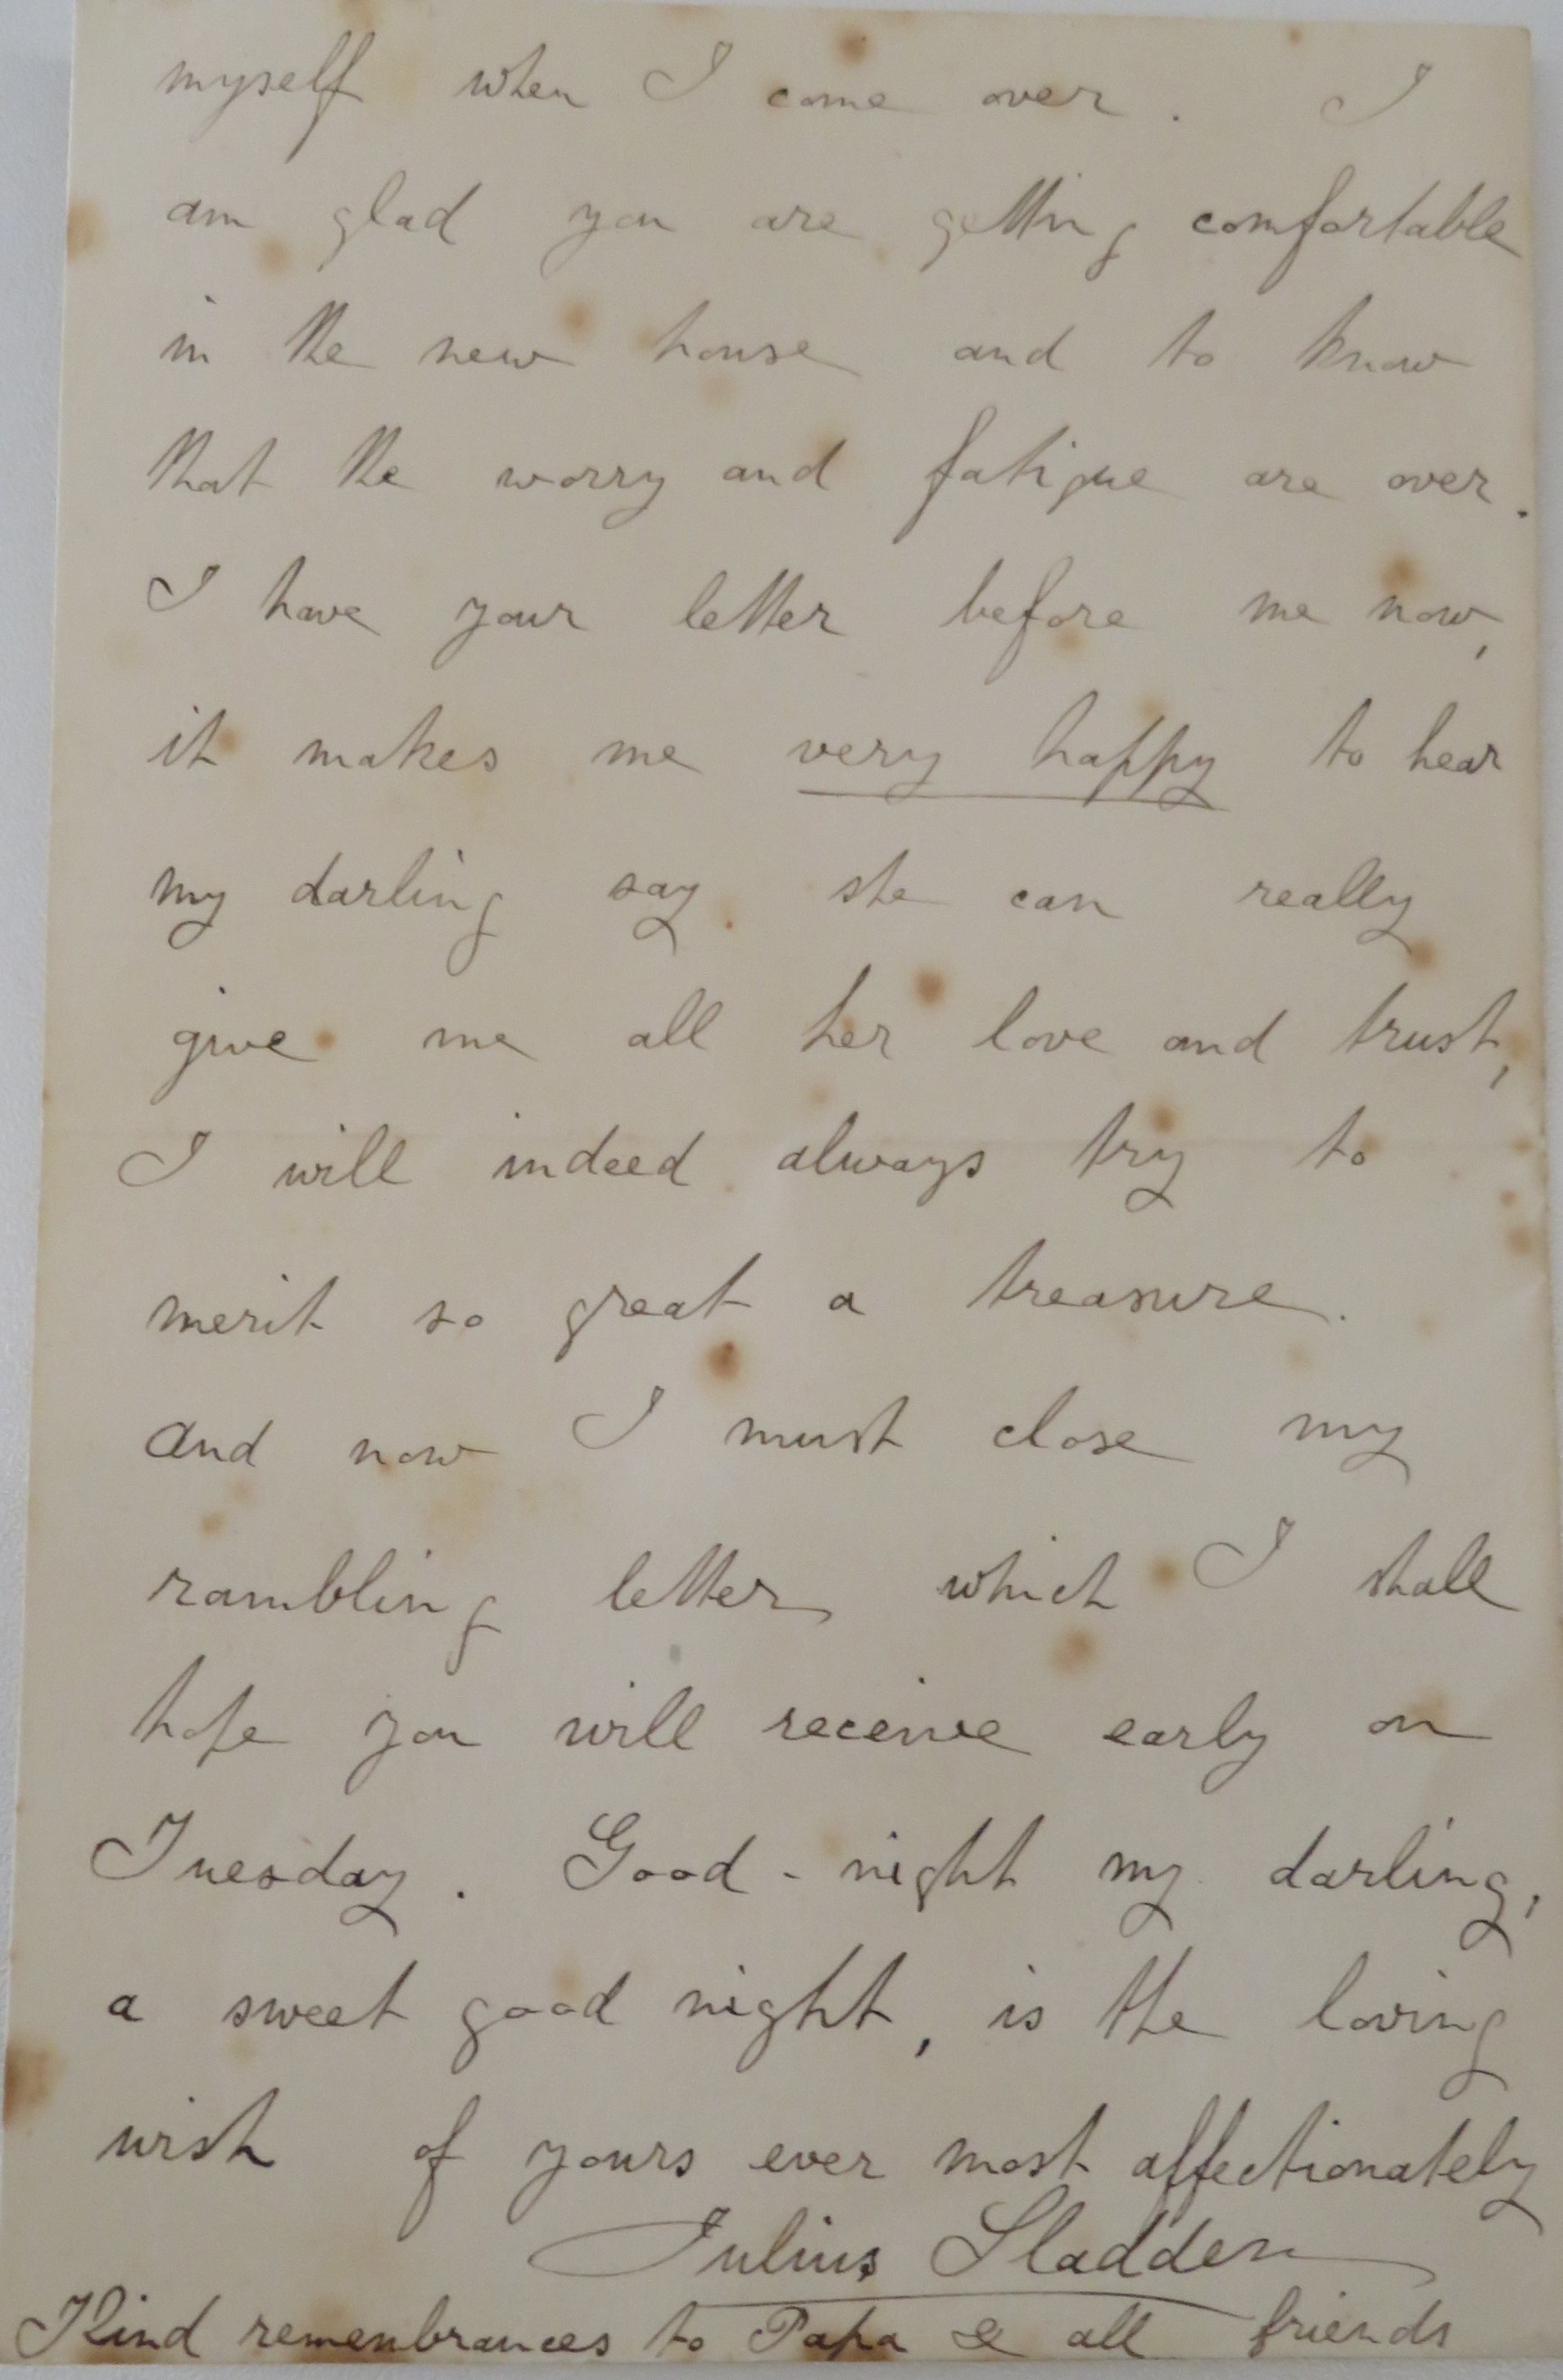 myself when I come over. I
am glad you are getting comfortable
in the new house and to know
that the worry and fatigue are over.
I have your letter before me now,
it makes me very happy to hear
my darling say she can really
give me all her love and trust,
I will indeed always try to
merit so great a treasure.
And now I must close my
rambling letter which I shall
hope you will receive early on
Tuesday. Good-night my darling,
a sweet good night, is the loving
wish of yours ever most affectionately
Julius Sladden
Kind remembrances to Papa & all friends